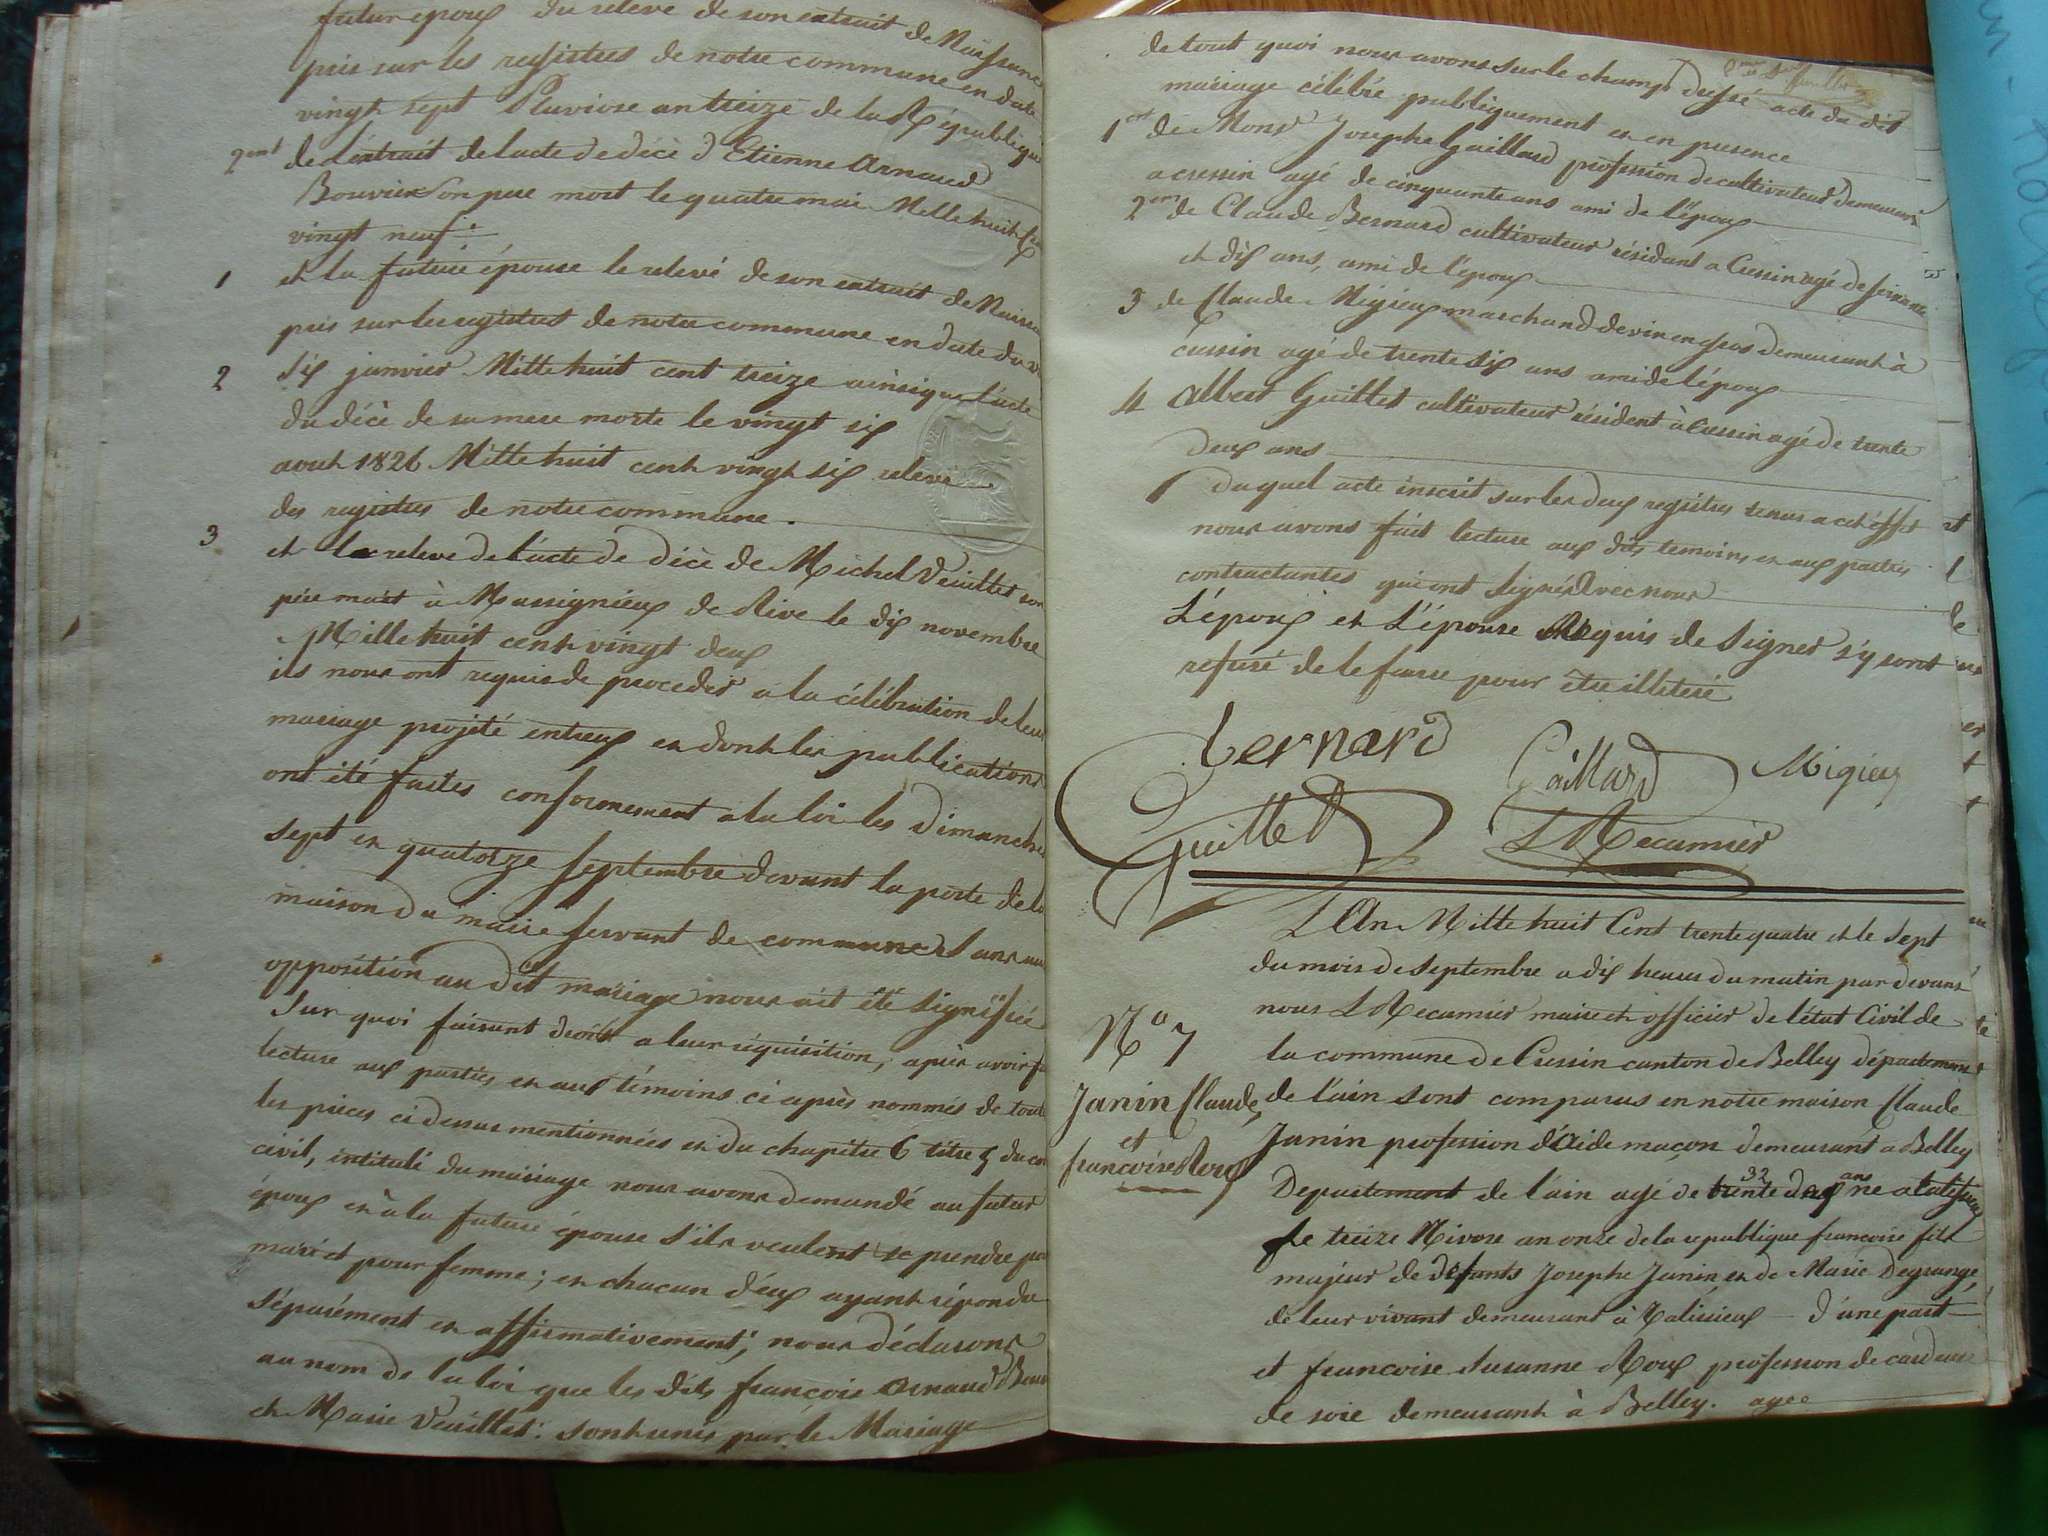 futur epoux du relevé de son extrait de Naissance
pris sur les registres de notre commune en date
vingt sept Pluviose an treize de la République
2ent de l'extrait de l'acte de décè d'Etienne Arnaud
Bouvier Son pere mort le quatre mai Mille huit cen
vingt neuf
1 et la future épouse le relevé de son extrait de Naissa
pris sur les registres de notre commune en date du
2 six janvier Mille huit cent treize ainsi que l'acte
du décè de sa mere morte le vingt six
aout 1826 Mille huit cent vingt six relevé
des registres de notre commune.
3 et le releve de l'acte de décè de Michel Veuillet son
père mort à Massignieux de Rive le dix novembre
Mille huit cent vingt deux
ils nous ont requis de proceder a la célébration de leur
mariage projété entreux et dont les publications
ont été faites conformement a la loi les dimanches
sept et quatorze septembre devant la porte de la
maison du maire servant de commune et aucune
opposition au dit mariage nous ait été signifiée
Sur quoi faisant droit a leur réquisition, après avoir fa
lecture aux parties et aux témoins ci après nommés de tout
les pieces ci dessus mentionnées et du chapitre 6 titre 5 du co
civil, intitulé du mariage nous avons demandé au futur
époux et à la future épouse s'ils veulent se prendre pour
mari et pour femme; et chacun d'eux ayant répondu
séparément et affirmativement; nous déclarons
au nom de la loi que les dits françois Arnaud Bouv
et Marie Veuillet: sont unis par le Mariage
de tout quoi nous avons sur le champ dressé acte du dit
mariage célébré publiquement et en presence
1ert de Monsr Josephe Gaillard profession de cultivateur demeurant
a cressin agé de cinquante ans ami de l'époux
2em de Claude Bernard cultivateur résidant a Cressin agé de soixante
et dix ans, ami de l'époux
3 de Claude Migieux marchand de vin en gros demeurant à
cressin agé de trente six ans ami de l'époux
4 Albert Guillet cultivateur résident à Cressin agé de trente
deux ans
Duquel acte inscrit sur les deux registres tenus a cet effet
nous avons fait lecture aux dits temoins et aux parties
contractantes qui ont signé Avec nous
L'époux et L'épouse Requis de signer s'y sont
refusé de le faire pour être illetéré
Bernard
Gaillard
Migieux
Guillet
L Recamier
L'An Mille huit Cent trente quatre et le sept
du mois de septembre a dix heures du matin par devant
nous L Recamier maire et officier de l'état Civil de
No 7
la commune de Cressin canton de Belley département
Janin Claude,
et
francoise Roux
de l'ain sont comparus en notre maison Claude
Janin profession d'Aide maçon demeurant a Belley
32 ans
Departement de l'ain agé de trente deux né a talissieux
le treize Nivose an onze de la republique francoise fils
majeur de defunts Josephe Janin et de Marie Degrange,
de leur vivant demeurant à Talissieux d'une part
et francoise Susanne Roux profession de cardeuse
de soie demeurant à Belley. agee